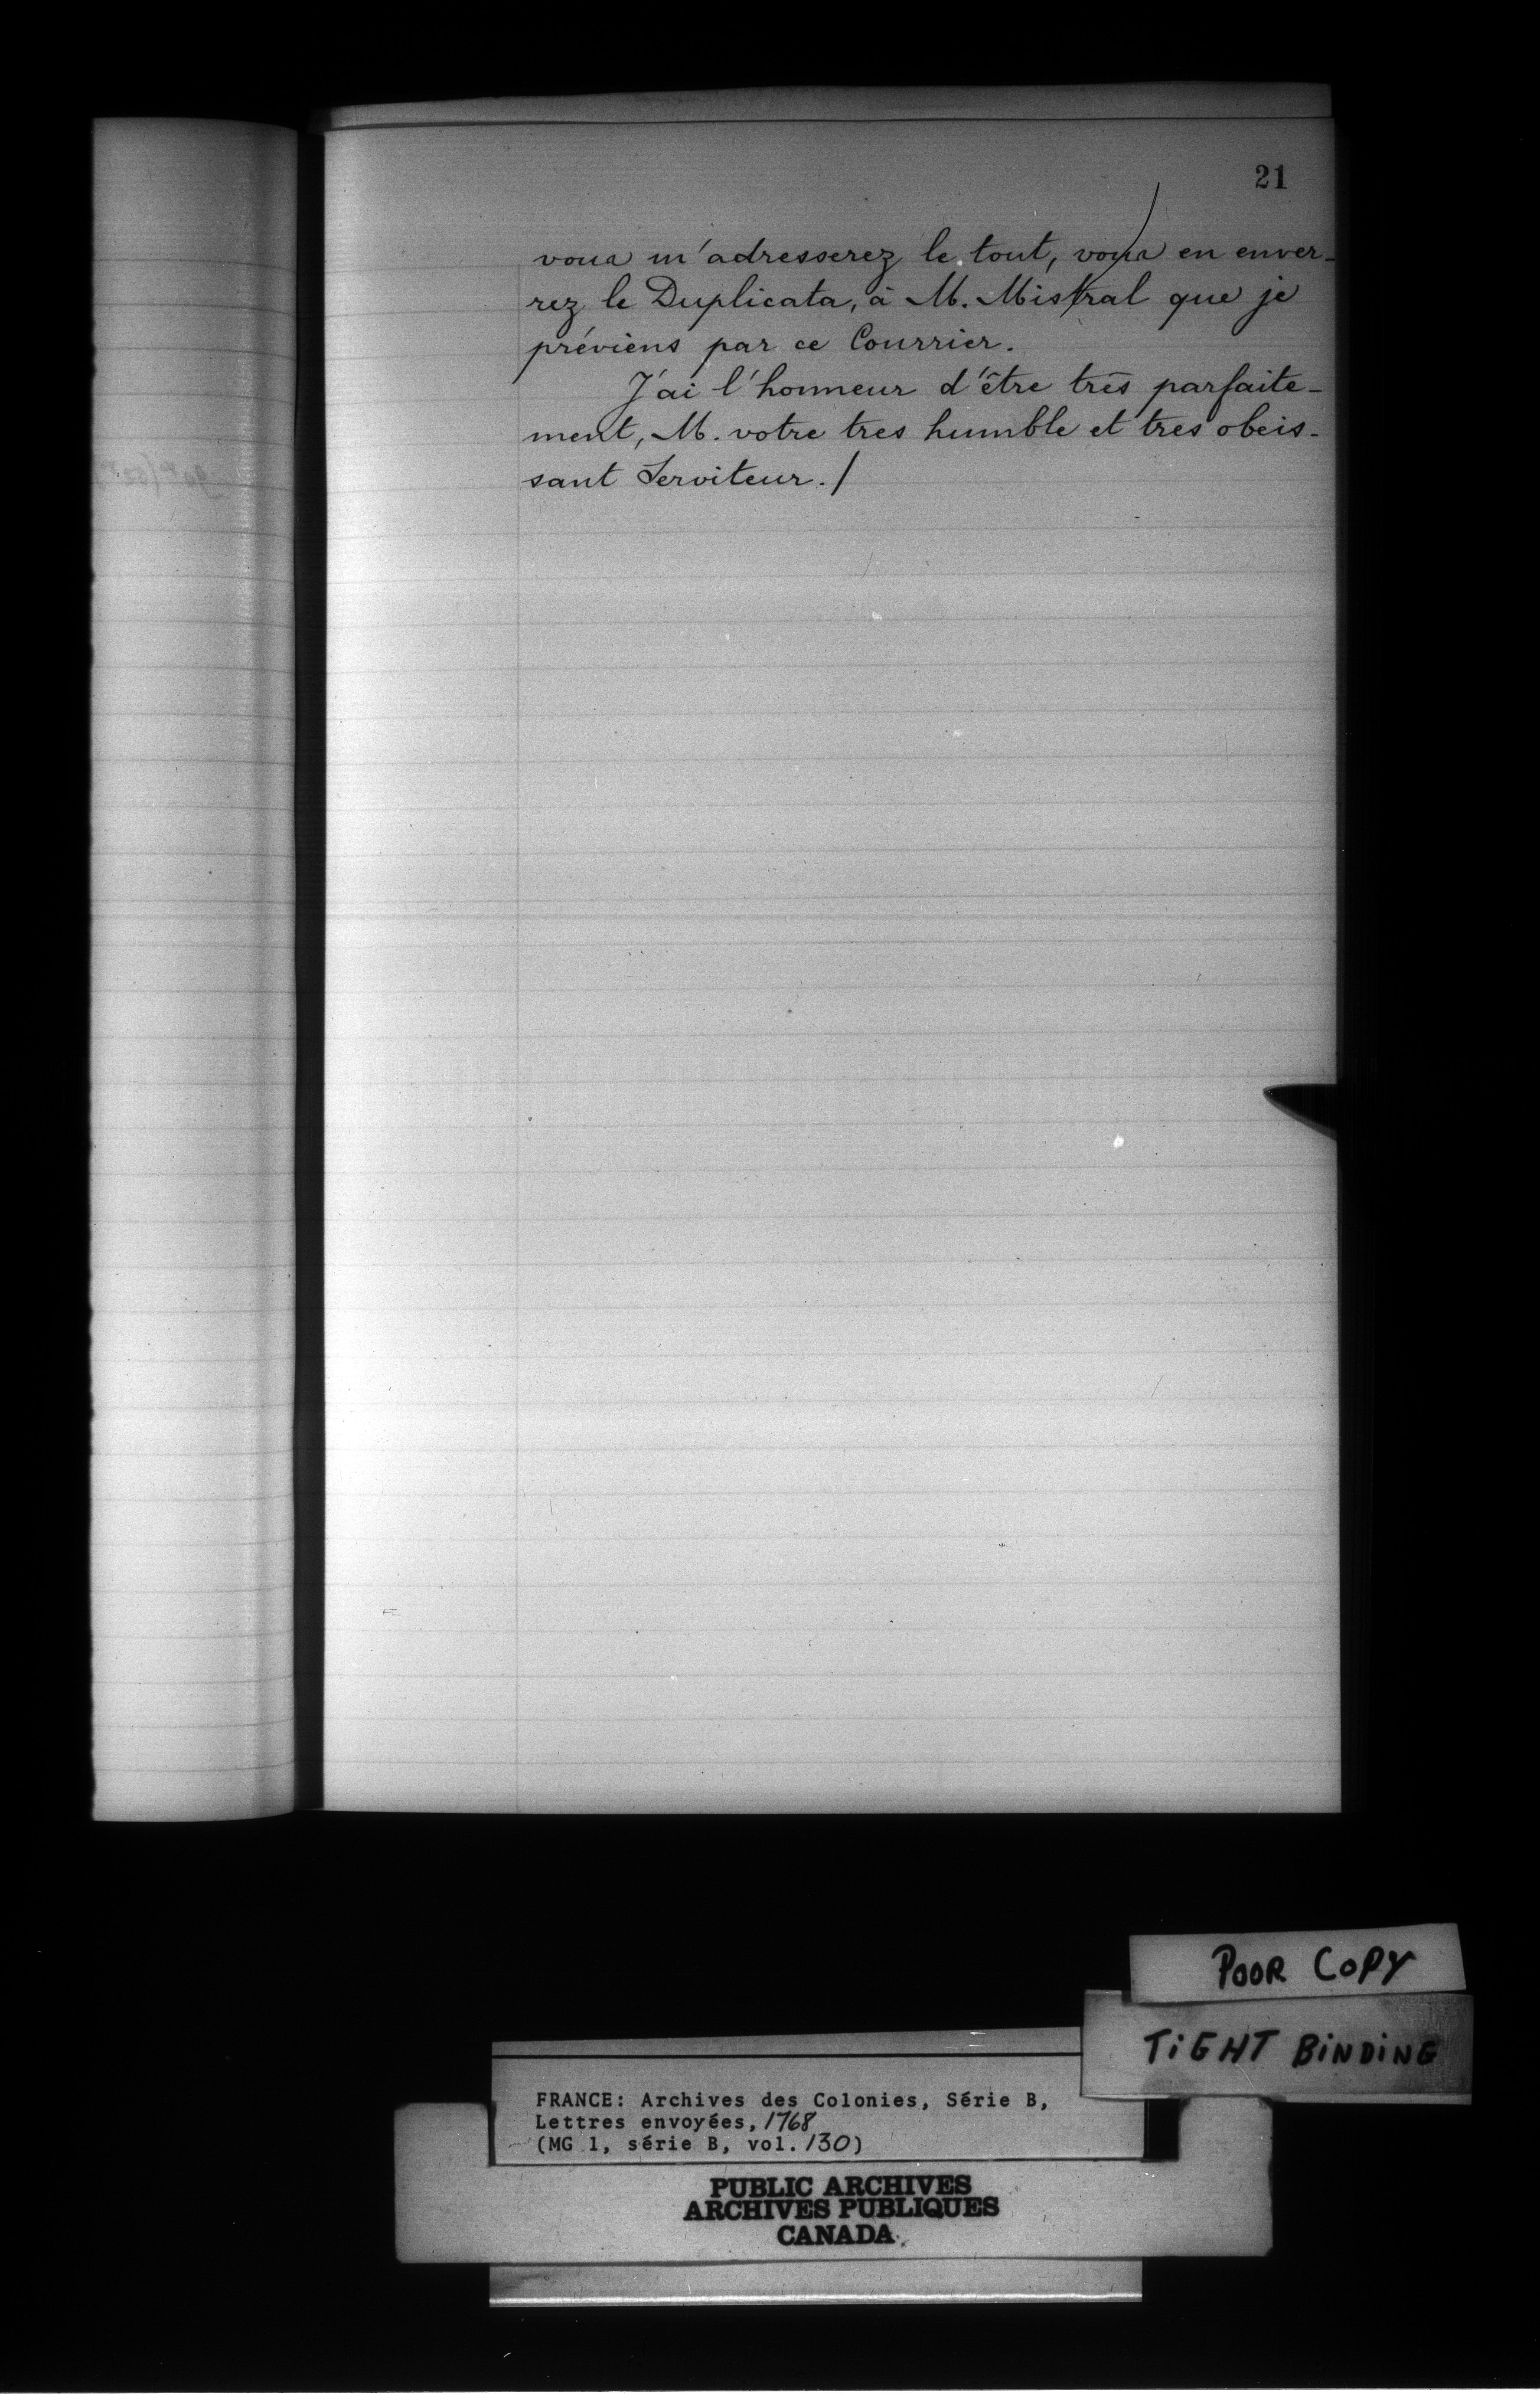 21
vous m'adresserez le tout, vous en enver-
rez le Duplicata, à M. Mistral que je
préviens par ce Courrier.
J'ai l'honneur d'être très parfaite-
ment, M. votre tres humble et tres obeis-
sant Serviteur./
POOR COPY
TiGHT BiNDiNG
FRANCE: Archives des Colonies, Série B,
Lettres envoyées, 1768
(MG 1, série B, vol. 130)
PUBLIC ARCHIVES
ARCHIVES PUBLIQUES
CANADA